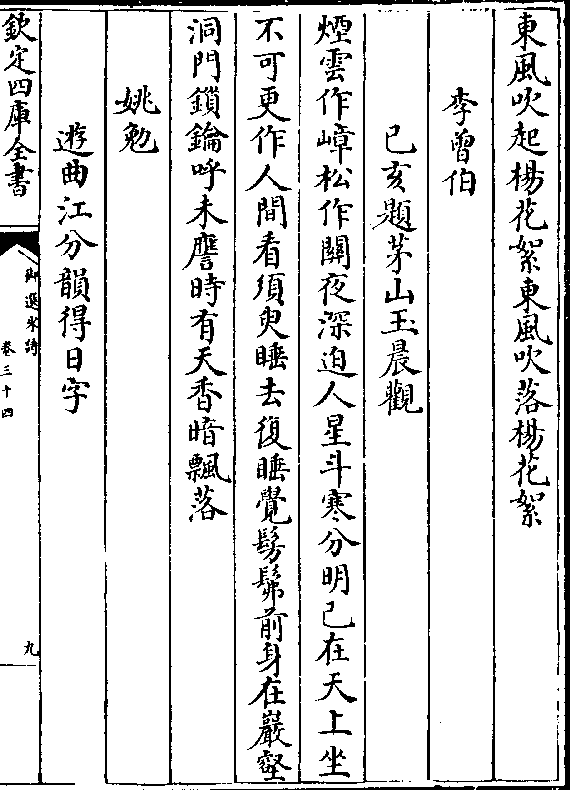 東風吹起楊花絮東風吹落楊花絮
李曾伯
己亥題茅山玉晨觀
煙雲作嶂松作關夜深迫人星斗寒分明已在天上坐
不可更作人間看須臾睡去復睡覺髣髴前身在巖壑
洞門鎖鑰呼未譍時有天香暗飄落
姚勉
遊曲江分韻得日字
欽定四庫全書
御選宋詩
卷三十四
九